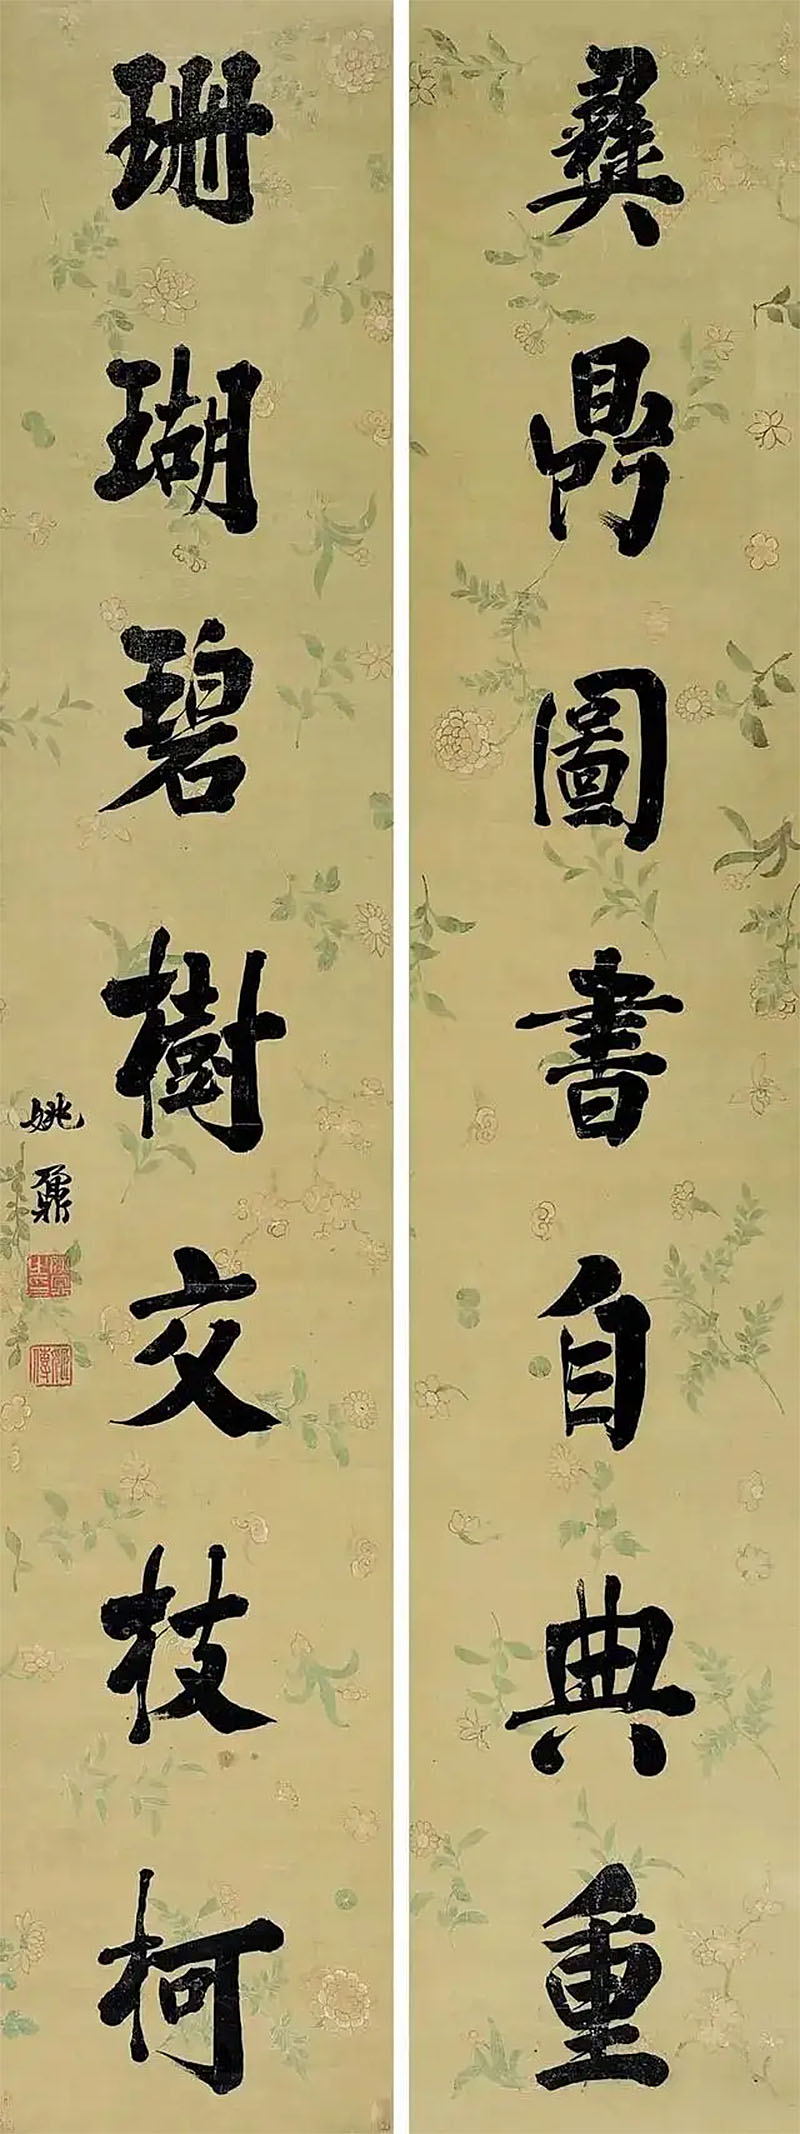 彝鼎圖書自典重
珊瑚碧樹交枝柯
姚鼐